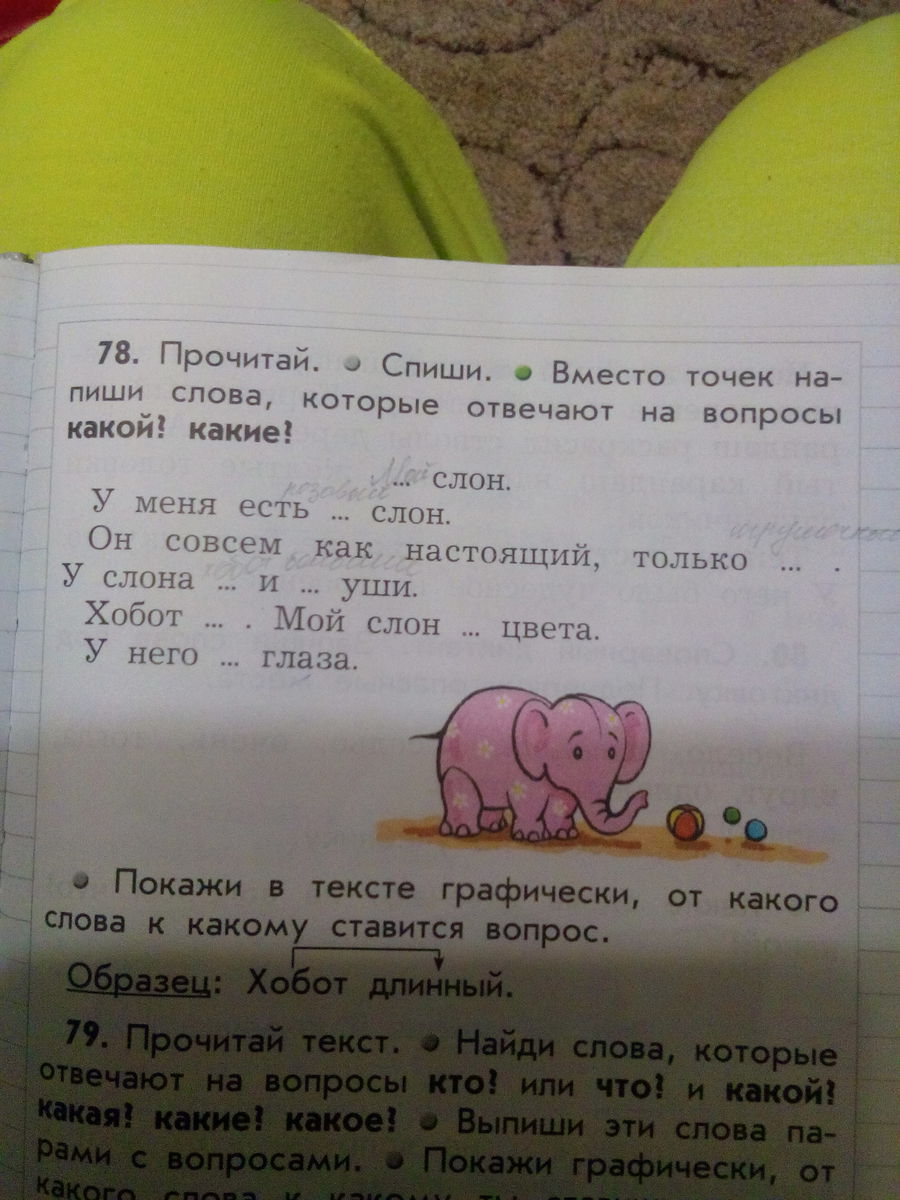 78. Прочитай. Спиши. Вместо точек на-
пиши слова, которые отвечают на вопросы
какой? какие?
Мой
... слон.
розовый
У меня есть ... слон.
игрушечный
Он совсем как настоящий, только ... .
У слона ... и ... уши.
Хобот ... . Мой слон ... цвета.
У него ... глаза.
Покажи в тексте графически, от какого
слова к какому ставится вопрос.
Образец: Хобот длинный.
79. Прочитай текст. Найди слова, которые
отвечают на вопросы кто? или что? и какой?
какая? какие? какое? Выпиши эти слова па-
рами с вопросами. Покажи графически, от
какого слова к какому ты